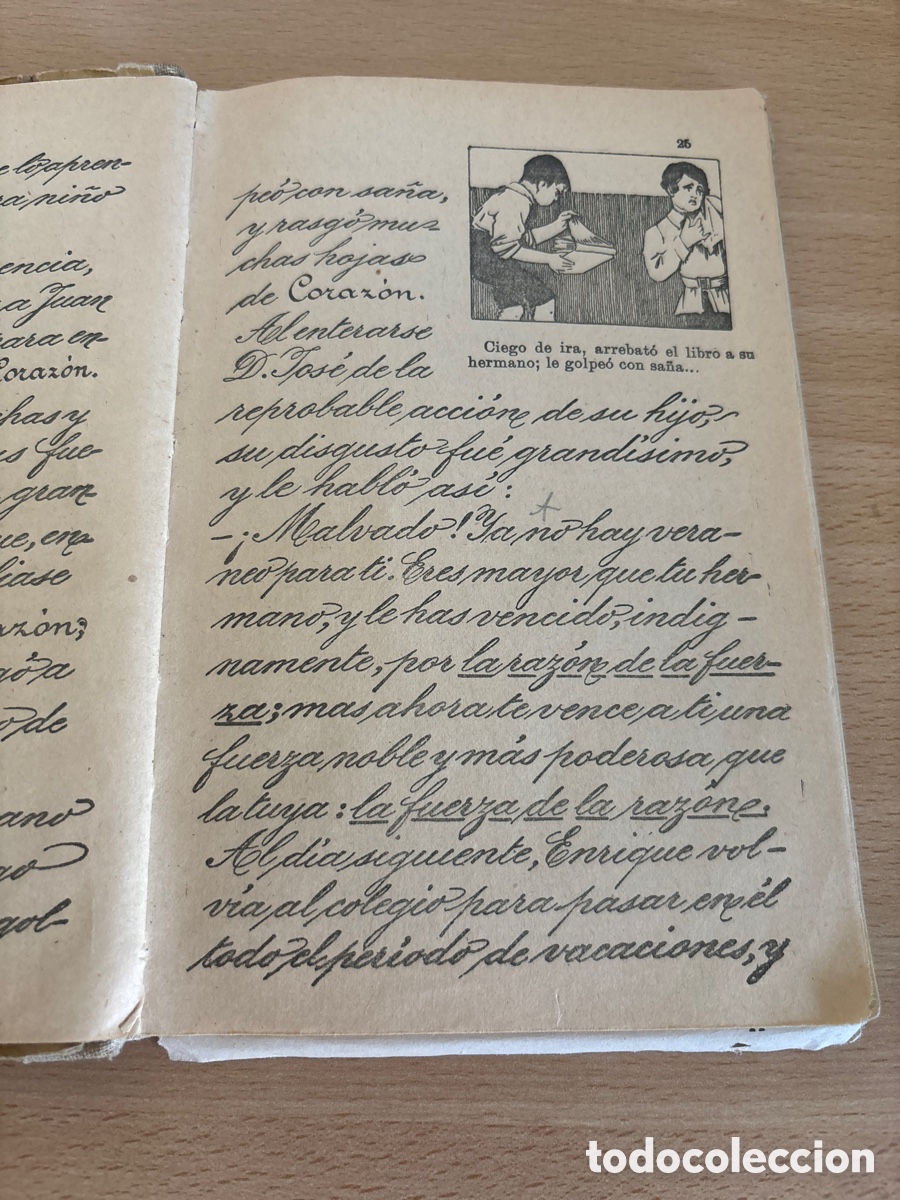 e lo apren-
ra niño
encia,
a a Juan
rara en-
Corazón.
chas y
s fue-
gran-
ue, en
liase
azón;
gó a
o de
ano
go
gol-
25
peó con saña,
y rasgó mu-
chas hojas
de Corazón.
Al enterarse
D. José de la
Ciego de ira, arrebató el libro a su
hermano; le golpeó con saña...
reprobable acción de su hijo,
su disgusto fué grandísimo,
y le habló así:
-¡Malvado! Ya no hay vera-
neo para ti. Eres mayor que tu her-
mano, y le has vencido, indig-
namente, por la razón de la fuer-
za; mas ahora te vence a ti una
fuerza noble y más poderosa que
la tuya: la fuerza de la razón.
Al día siguiente, Enrique vol-
vía al colegio para pasar en él
todo el período de vacaciones, y
todocoleccion.net